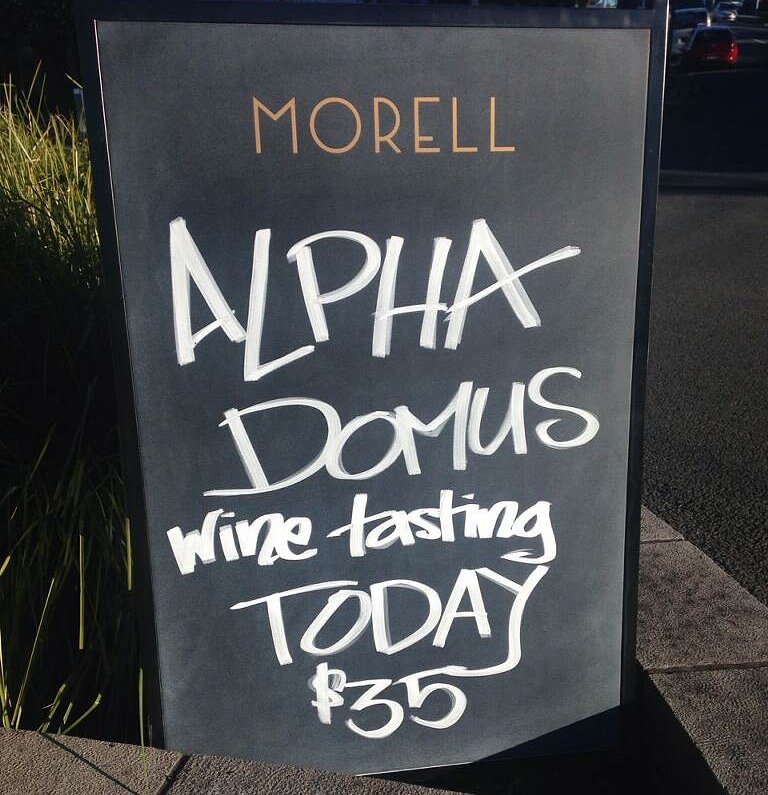 MORELL
ALPHA
DOMUS
wine tasting
TODAY
$35